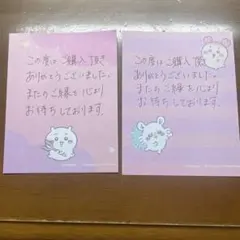 この度はご購入頂き
ありがとうございました。
またのご縁を心より
お待ちしております。
この度はご購入頂き
ありがとうございました。
またのご縁を心より
お待ちしております。